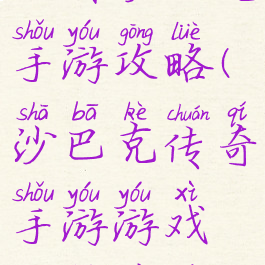 shǒu yóu gōng lüè
手游攻略(
shā bā kè chuán qí
沙巴克传奇
shǒu yóu yóu xì
手游游戏